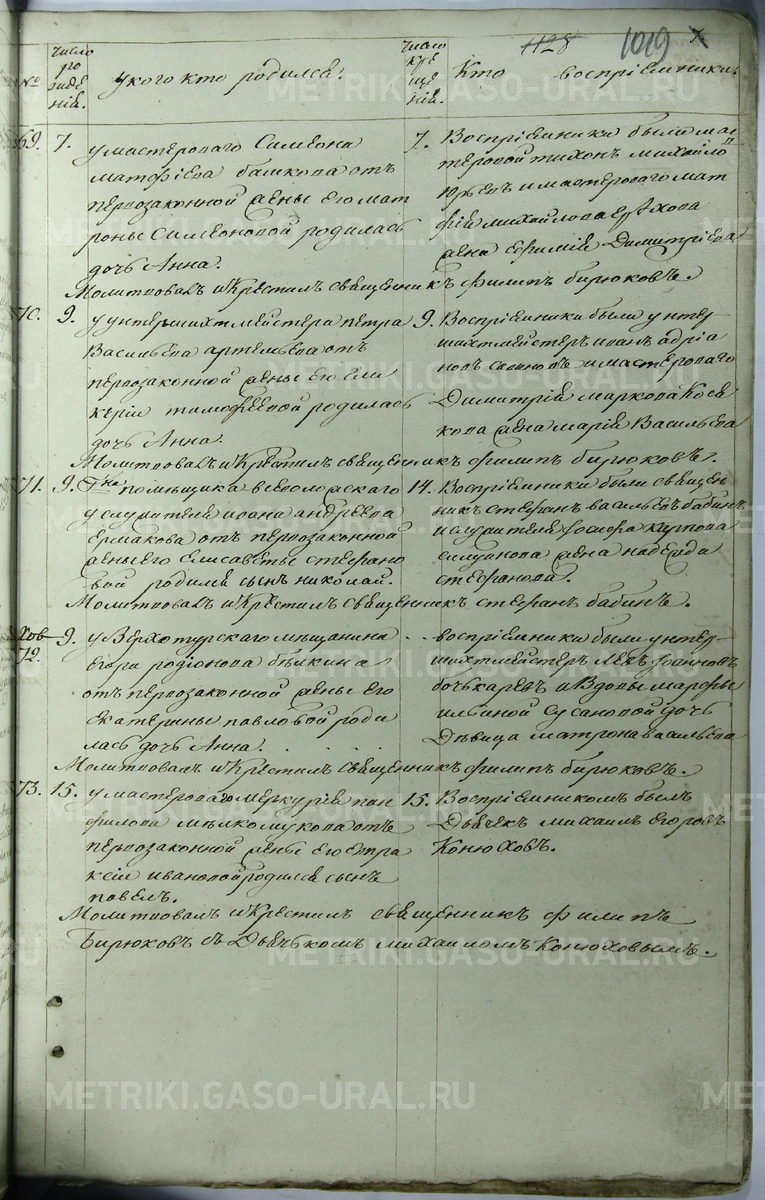 1128 1019
№
число рождений.
у кого кто родился:
число крещений.
Кто воспрiемники:
69. 7.
у мастероваго Симеона
матфѣева башкова отъ
первозаконной жены его мат
роны Симеоновой родилась
дочь Анна.
7. Воспрiемники были мас
теровой тихонъ михайло
Юрьевъ и мастероваго мат
фiя михайлова
жена ефимiя Димитрiева
Молитвовалъ и Крестилъ священникъ филипъ бирюковъ.
70. 9.
у унтершихтмейстера петра
Васильева артемьева отъ
первозаконной жены его гли
керiи тимофеевой родилась
дочь Анна.
9. Воспрiемники были унтер
шихтмейстеръ иванъ адрiа
новъ и мастероваго
Димитрiя маркова Кося
кова жена марiя Васильева
Молитвовалъ и Крестилъ священникъ филипъ бирюковъ.
71. 9.
Гна помѣщика всеволожскаго
у служителя иоана андреева
Ермакова отъ первозаконной
жены его Елисаветы стефано
вой родился сынъ николай.
14. Воспрiемники были священ
никъ стефанъ васильевъ бабинъ
и служителя iосифа карпова
жена надежда
стефанова.
Молитвовалъ и Крестилъ священникъ стефанъ бабинъ.
72. 9.
у Верхотурскаго мѣщанина
егора родiонова бѣлкина
отъ первозаконной жены его
екатерины павловой роди
лась дочь Анна.
воспрiемники были унтер
шихтмейстеръ iоанновъ
бочькаревъ и вдовы марфы
ильиной сусановой дочь
Дѣвица матрона васильева
Молитвовалъ и Крестилъ священникъ филипъ бирюковъ.
73. 15.
у мастероваго меркурiя пан
филова мѣлкомукова отъ
первозаконной жены его евпра
ксiи ивановой родился сынъ
павелъ.
15. Воспрiемникомъ былъ
Дьячекъ михаилъ егоровъ
Конюховъ.
Молитвовалъ и Крестилъ священникъ филипъ
Бирюковъ съ Дьячькомъ михаиломъ Конюховымъ.
METRIKI.GASO-URAL.RU